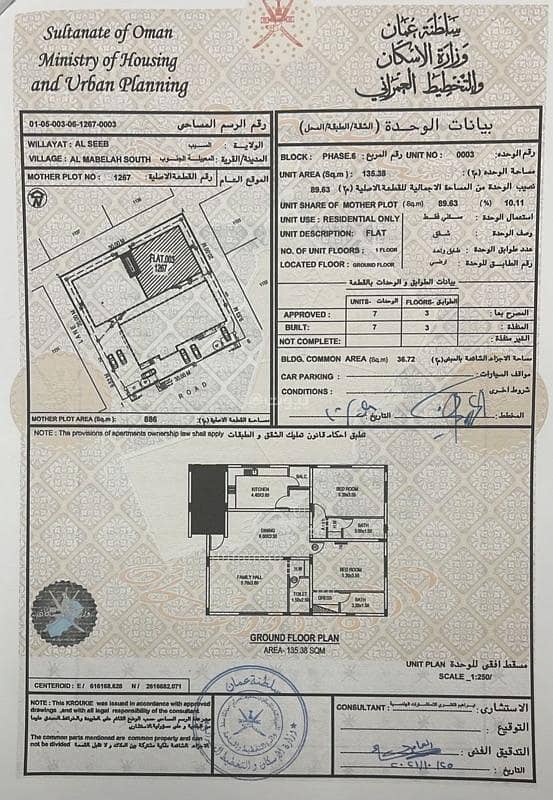 Sultanate of Oman
Ministry of Housing
and Urban Planning
سلطنة عمان
وزارة الإسكان
والتخطيط العمراني
01-05-003-06-1267-0003 رقم الرسم المساحي
WILLAYAT : AL SEEB الولاية : السيب
VILLAGE : AL MABELAH SOUTH المدينة/القرية: المعبيلة الجنوب
MOTHER PLOT NO : 1267 رقم القطعة الاصلية : الموقع العام
N
FLAT.003
1267
LANE
ROAD
MOTHER PLOT AREA(Sq.m) : 886 مساحة القطعة الاصلية (م٢):
بيانات الوحدة (الشقة/الطبقة/المحل)
BLOCK : PHASE.6 رقم المربع : UNIT NO : 0003 رقم الوحدة:
UNIT AREA (Sq.m) : 135.38 مساحة الوحدة (م٢) :
89.63 نصيب الوحدة من المساحة الاجمالية للقطعة الاصلية (م٢)
UNIT SHARE OF MOTHER PLOT (Sq.m) 89.63 (%) 10.11
UNIT USE : RESIDENTIAL ONLY سكني فقط استعمال الوحدة :
UNIT DESCRIPTION: FLAT شقق وصف الوحدة :
NO. OF UNIT FLOORS : 1 FLOOR طابق واحد عدد طوابق الوحدة :
LOCATED FLOOR : GROUND FLOOR ارضي رقم الطابق للوحدة :
بيانات الطوابق و الوحدات بالقطعة
UNITS- الوحدات FLOORS- الطوابق
APPROVED : 7 3 المصرح بها :
BUILT: 7 3 المنفذة :
NOT COMPLETE: الغير منفذة :
BLDG. COMMON AREA (Sq.m) 36.72 مساحة الاجزاء الشائعة بالمبنى (م٢)
CAR PARKING : مواقف السيارات :
CONDITIONS : شروط اخرى :
المخطط : التاريخ :
NOTE : The provisions of apartments ownership law shall apply تطبق احكام قانون تمليك الشقق و الطبقات
BALC.
KITCHEN
4.40X3.80
BED ROOM
5.30X3.50
DINING
6.00X3.50
BATH
H.W
BED ROOM
5.30X3.50
FAMILY HALL
5.70X3.80
H.W
TOILET
1.50X2.50
DRESS
BATH
3.30X1.50
GROUND FLOOR PLAN
AREA- 135.38 SQM
UNIT PLAN مسقط افقي للوحدة
SCALE _1:250/
CENTEROID : E / 616168.626 N / 2616682.071
NOTE : This KROUKIE was issued in accordance with approved
drawings ,and with all legal responsibility of the consultant
The common parts mentioned are common property and can
not be divided الاجزاء الشائعة ملكية مشتركة بين الملاك و لا تقبل القسمة
CONSULTANT : الاستشاري :
التوقيع :
التدقيق الفني :
التاريخ : ٢٠٢١/١٠/٢٥
سلطنة عمان
وزارة الإسكان والتخطيط العمراني